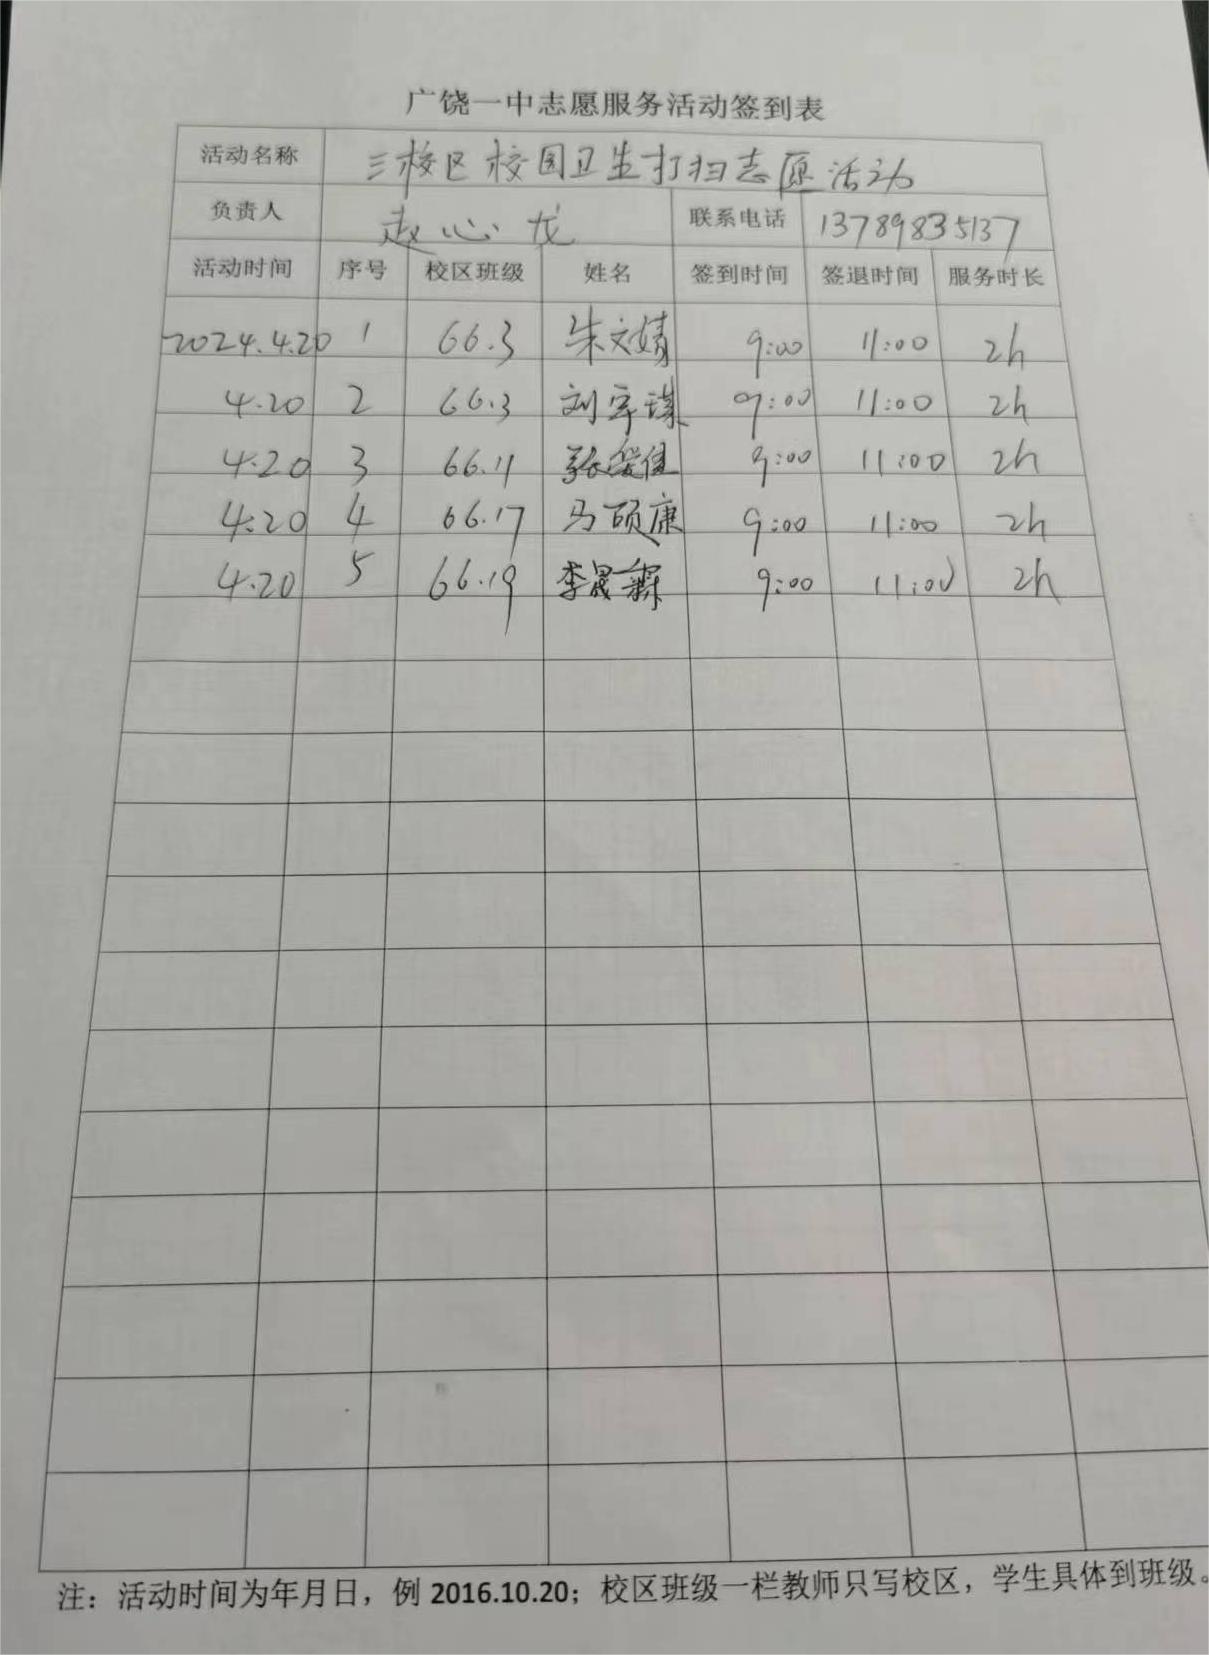 广饶一中志愿服务活动签到表
活动名称 三校区校园卫生打扫志愿活动
负责人 赵心龙 联系电话 13789835137
活动时间 序号 校区班级 姓名 签到时间 签退时间 服务时长
2024.4.20 1 66.3 朱文婧 9:00 11:00 2h
4.20 2 66.3 刘宇琪 9:00 11:00 2h
4.20 3 66.11 张 9:00 11:00 2h
4.20 4 66.17 马硕康 9:00 11:00 2h
4.20 5 66.19 李晟霖 9:00 11:00 2h
注：活动时间为年月日，例 2016.10.20；校区班级一栏教师只写校区，学生具体到班级。